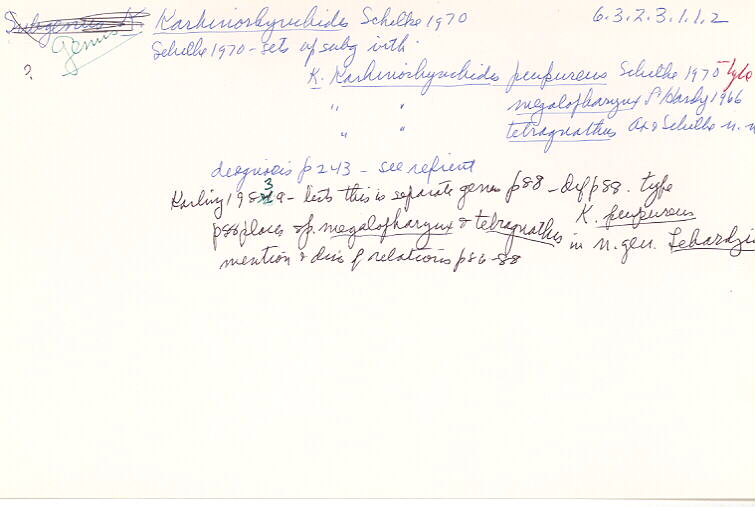 Subgenus K. Karkinorhynchides Schilke 1970 6.3.2.3.1.1.2
Genus
Schilke 1970 - sets up subg with
?
K. Karkinorhynchides purpureus Schilke 1970 type
" " megalopharynx Schilke 1966
" " tetragnathus Ax & Schilke
diagnosis p 243 - see reprint
Karling 1983a - lists this is separate genus p88 - Dif p88. type
K. purpureus
p88 places sp. megalopharynx & tetragnathus in n. gen.
mention & disc of relations p86-88